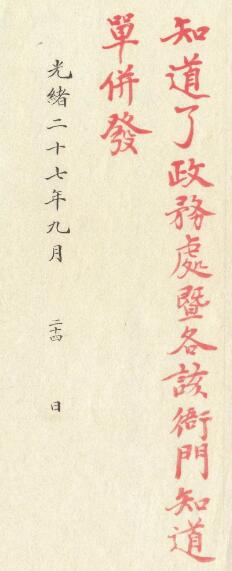 知道了政務處暨各該衙門知道
單併發
光緒二十七年九月 二十四 日